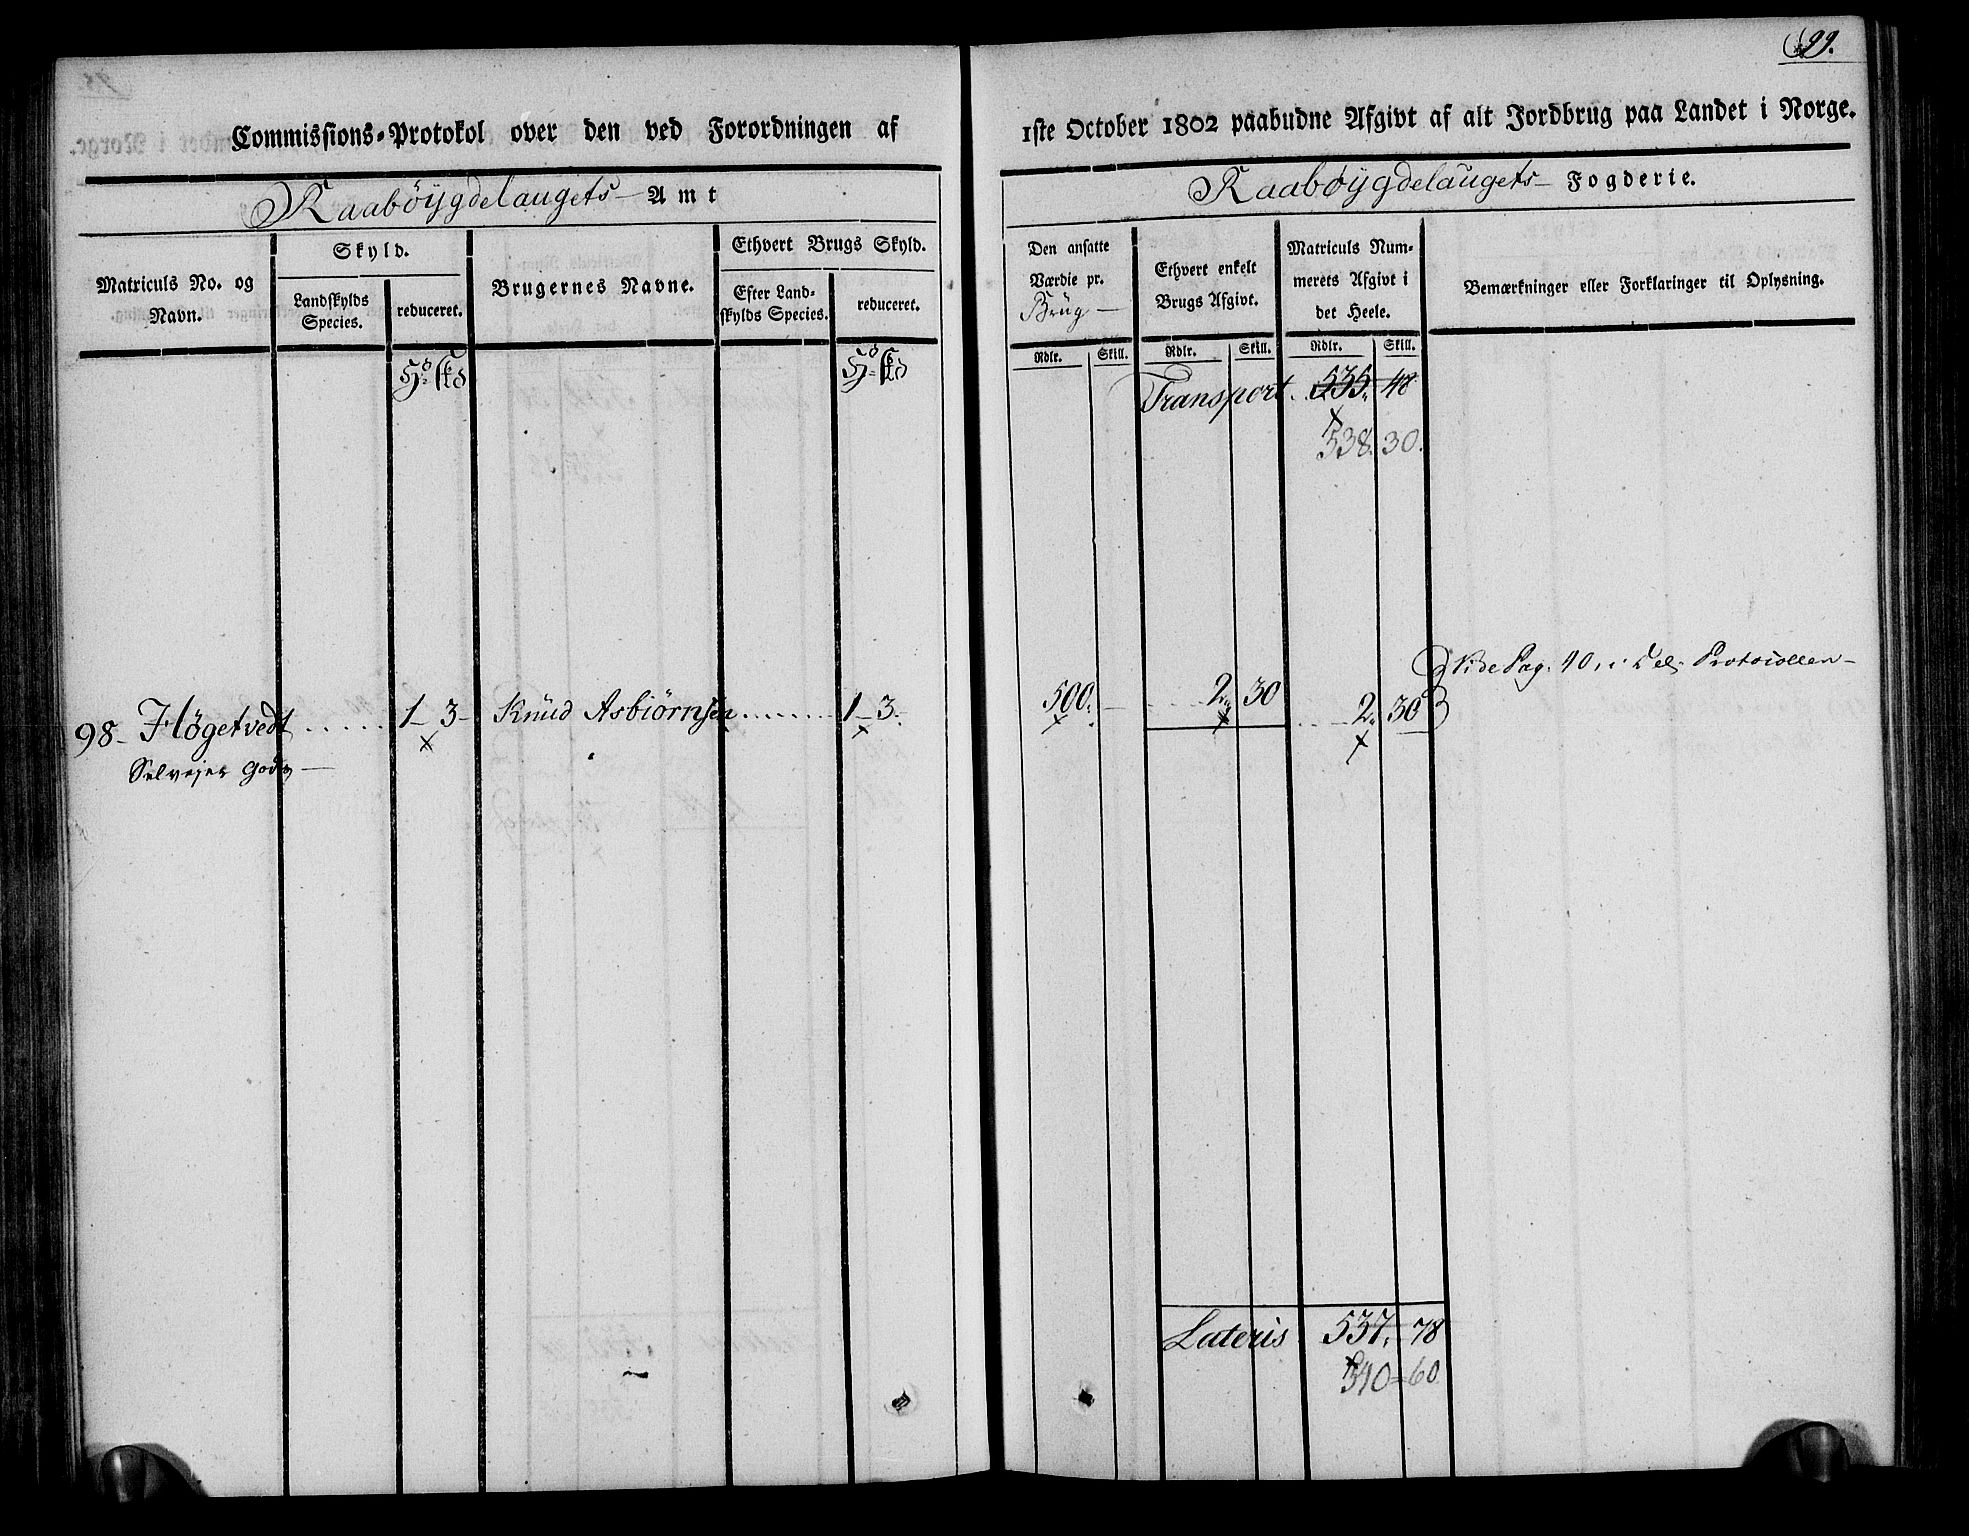 99.
Commissions-Protokol over den ved Forordningen af 1ste October 1802 paabudne Afgivt af alt Jordbrug paa Landet i Norge.
Raabøygdelaugets Amt
Raabøygdelaugets Fogderie.
Matriculs No. og Navn.
Skyld.
Landskylds Species.
reduceret.
Brugernes Navne.
Ethvert Brugs Skyld.
Efter Landskylds Species.
reduceret.
Den ansatte Værdie pr. Brüg
Rdlr. Skill.
Ethvert enkelt Brugs Afgivt.
Rdlr. Skill.
Matriculs Nummerets Afgivt i det Heele.
Rdlr. Skill.
Bemærkninger eller Forklaringer til Oplysning.
Transport. 535. 48
538. 30.
98 Høgetvedt ..... 1 – 3 – Knüd Asbiørnsen ........ 1 – 3. 500. – 2. 30 2. 30
Vide Pag. 40, i Protocollen
Selvejer Gods
Lateris 537. 78
540 = 60